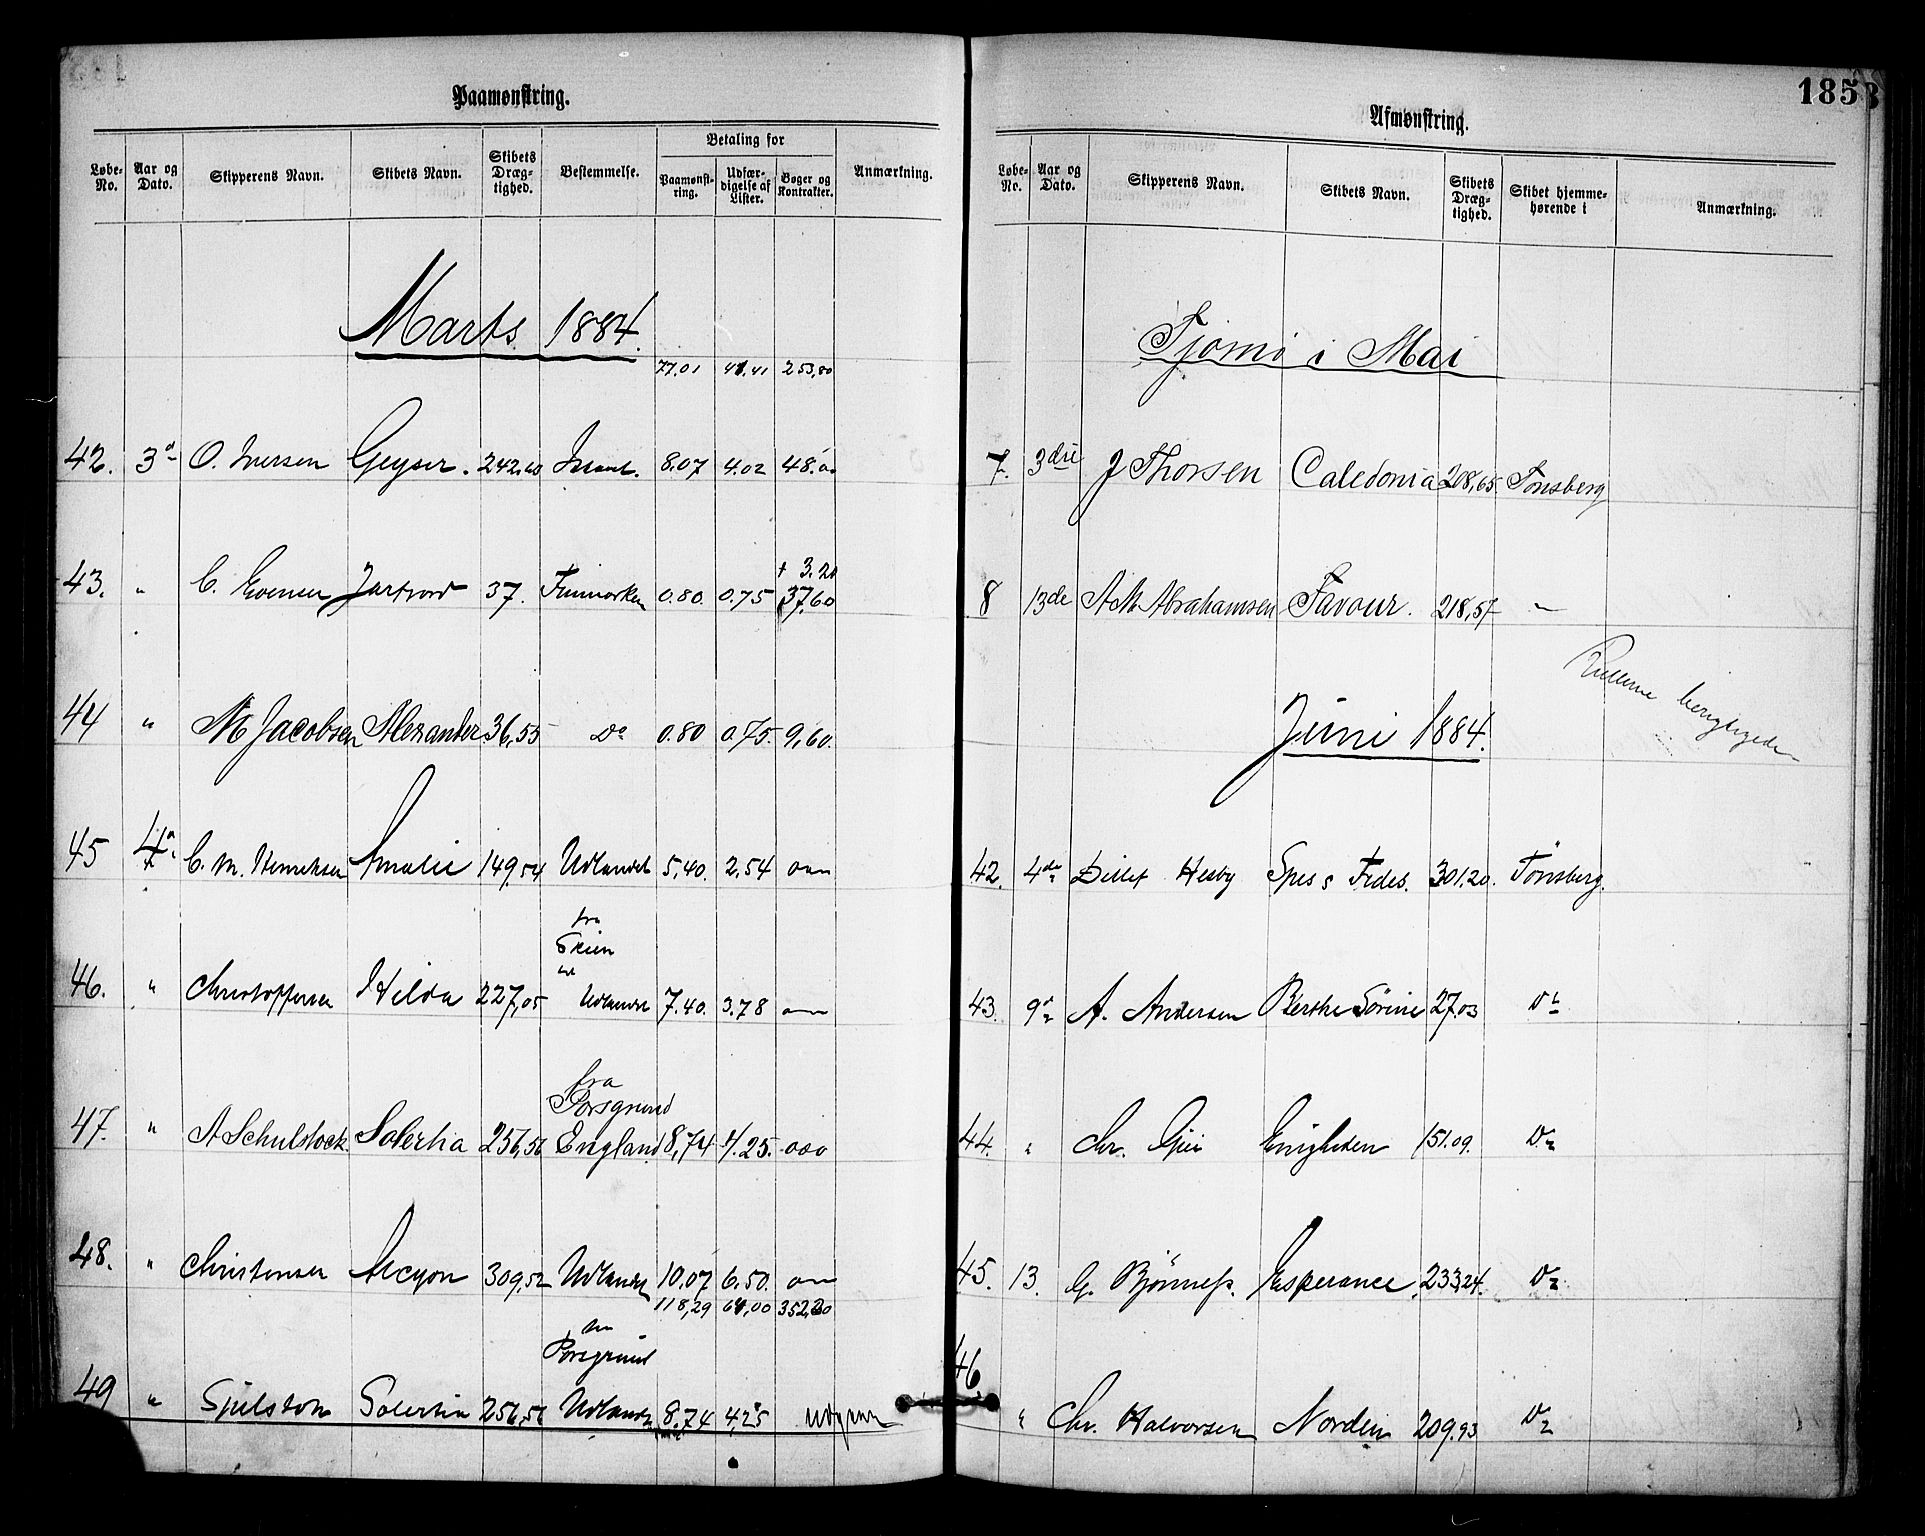 Paamønstring.
Løbe-No. Aar og Dato. Skipperens Navn. Skibets Navn. Skibets Dræg-tighed. Bestemmelse. Betaling for Paamønst-ring. Udfær-digelse af Lister. Bøger og Kontrakter. Anmærkning.
Marts 1884.
77.01 41.41 253,80
42. 3d O. Iversen Geyser. 242.60 8.07 4.02 48.00
+ 3.20
43. " C. Evensen 37. Finmarken 0.80. 0.75 37.60
44 " M Jacobsen Alexander 36,55 Do 0.80 0.75. 9,60.
45 4d C. M. Henriksen Amalie 149,54 Udlandet 5,40. 2,54
fra
Skien
46. " Christoffersen Hilda 227,05 Udlandet 7.40. 3.78
fra
Porsgrund
47. " A Schulstock Solertia 256,56 England 8,74 4.25. ooo
48. " Christensen Alcyon 309,52 Udlandet 10.07 6.50.
118,29 64,00 352,20
Porsgrund
49 " Sjulstok Solertia 256,56 Udlandet 8.74 4,25
1853
Afmønstring.
Løbe-No. Aar og Dato. Skipperens Navn. Skibets Navn. Skibets Dræg-tighed. Skibet hjemme-hørende i Anmærkning.
Tjømø i Mai
7. 3die J Thorsen Caledonia 208,65 Tønsberg
8 13de A M Abrahamsen Favour. 218,57 "
Rullerne
Juni 1884.
42. 4de Hesby Spes & Fides. 301.20. Tønsberg.
43. 9d A. Andersen Berthe Sørine 27.03 Do
44. " Chr. Enigheden 151.09. Do
45. 13. G. Bjønness. Esperance 233,24. Do
46. " Chr. Halvorsen Norden 209.93 Do